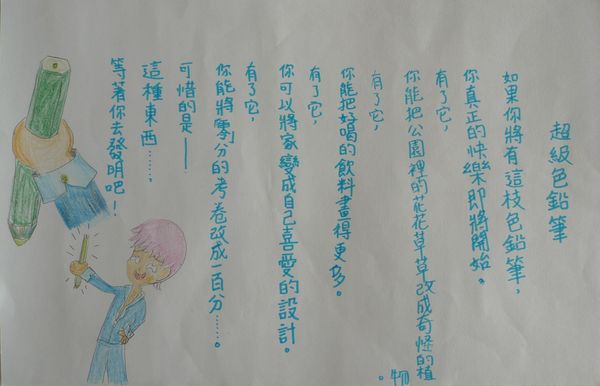 超級色鉛筆
如果你將有這枝色鉛筆，
你真正的快樂即將開始。
有了它，
你能把公園裡的花花草草改成奇怪的植物。
有了它，
你能把好喝的飲料畫得更多。
有了它，
你可以將家變成自己喜愛的設計。
有了它，
你能將零分的考卷改成一百分……。
可惜的是——
這種東西……，
等著你去發明吧！